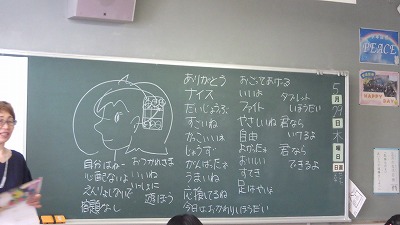 ありがとう
ナイス
だいじょうぶ
すごいね
かっこいいね
じょうず
がんばったね
うまいね
応援してるね
今日はおかわりしほうだい
おごってあげる
いいよ
ファイト
やさしいね
自由
よかったね
おいしい
すてき
足はやいね
タブレット
しほうだい
君なら
いけるよ
君なら
できるよ
おつかれさま
いいね
いっしょに
遊ぼう
心配ないよ
えんりょしないで
宿題なし
5
月
日
木
曜
日
PEACE